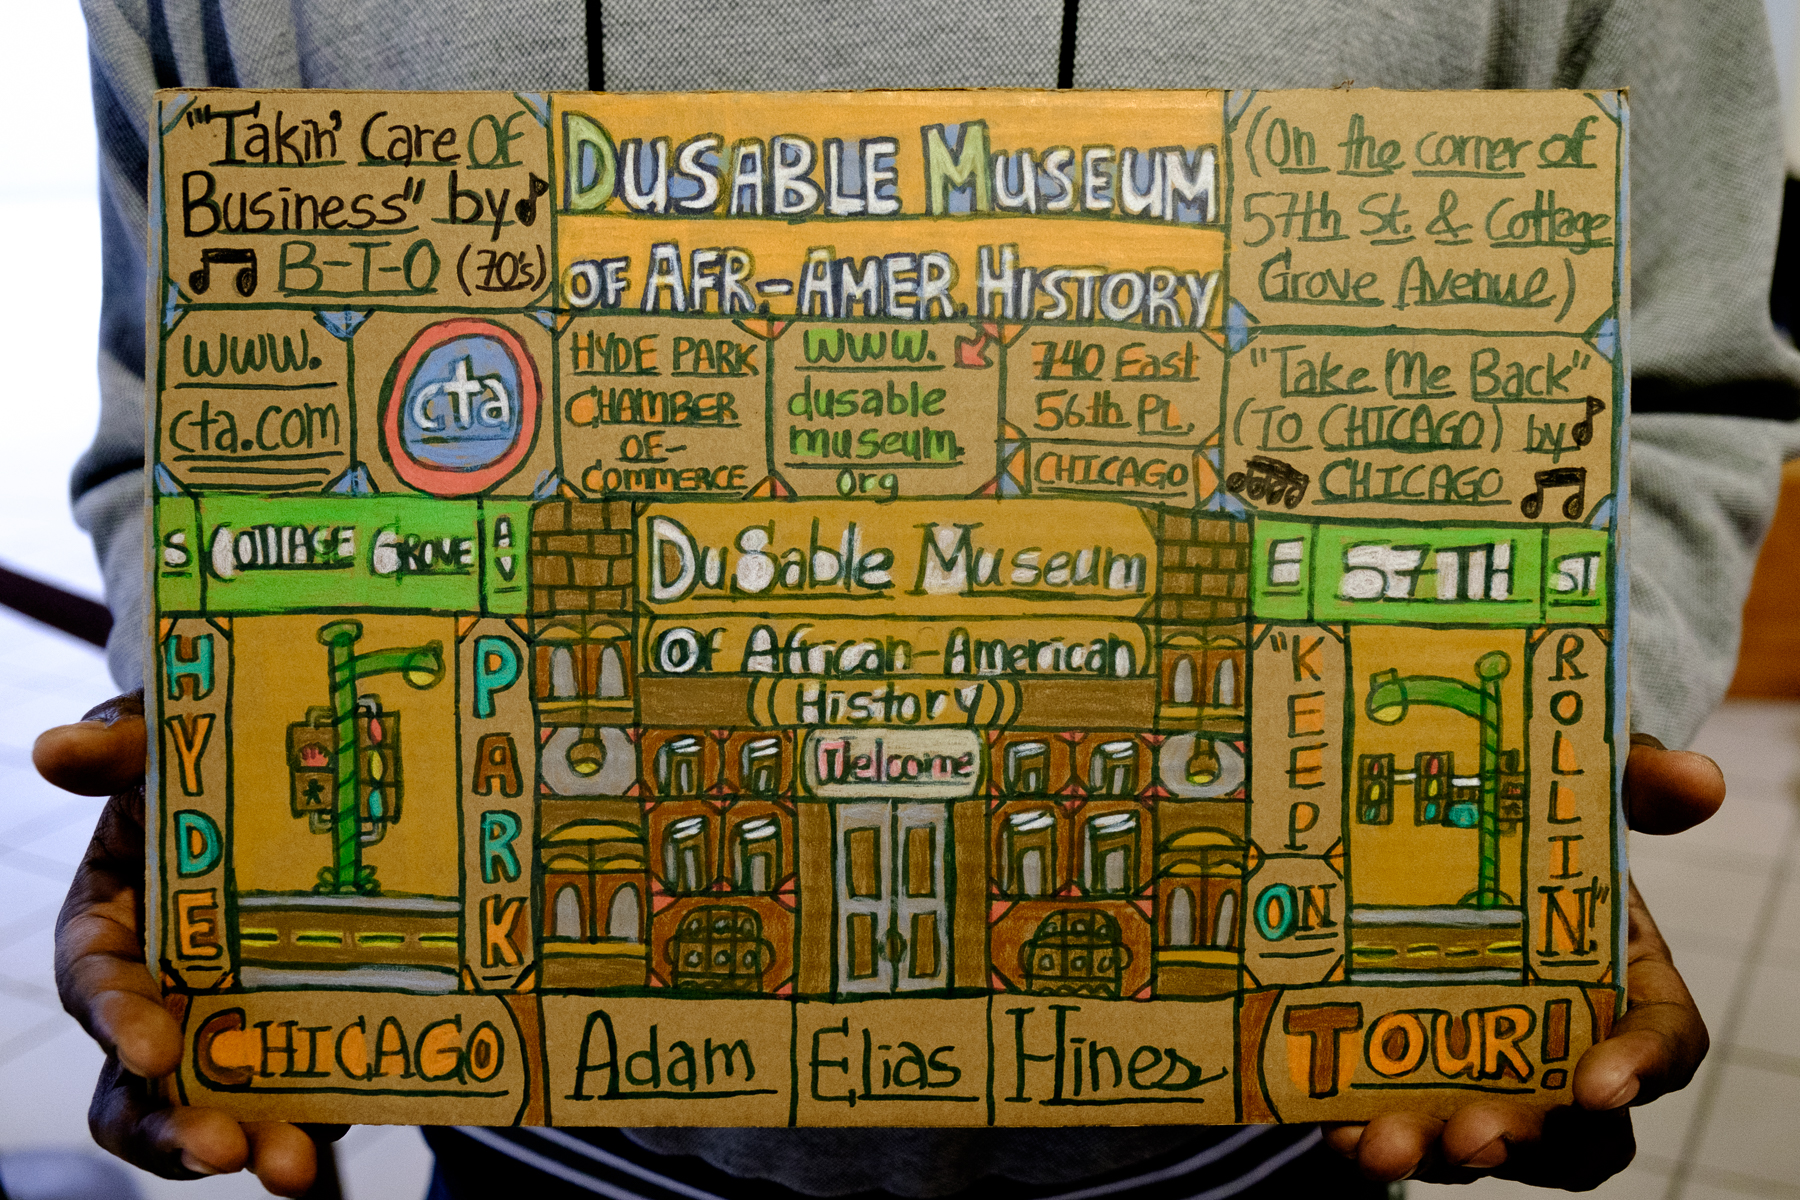 "Takin' Care OF
Business" by
B-T-O (70's)
DUSABLE MUSEUM
OF AFR.-AMER. HISTORY
(On the corner of
57th St. & Cottage
Grove Avenue)
www.
cta.com
cta
HYDE PARK
CHAMBER
OF-
COMMERCE
www.
dusable
museum.
org
740 East
56th PL.
CHICAGO
"Take Me Back"
(TO CHICAGO) by
CHICAGO
S COTTAGE GROVE AV
DuSable Museum
Of African-American
(History)
Welcome
E 57TH ST
HYDE
PARK
"KEEP
ON
ROLLIN!"
CHICAGO
Adam Elias Hines
TOUR!